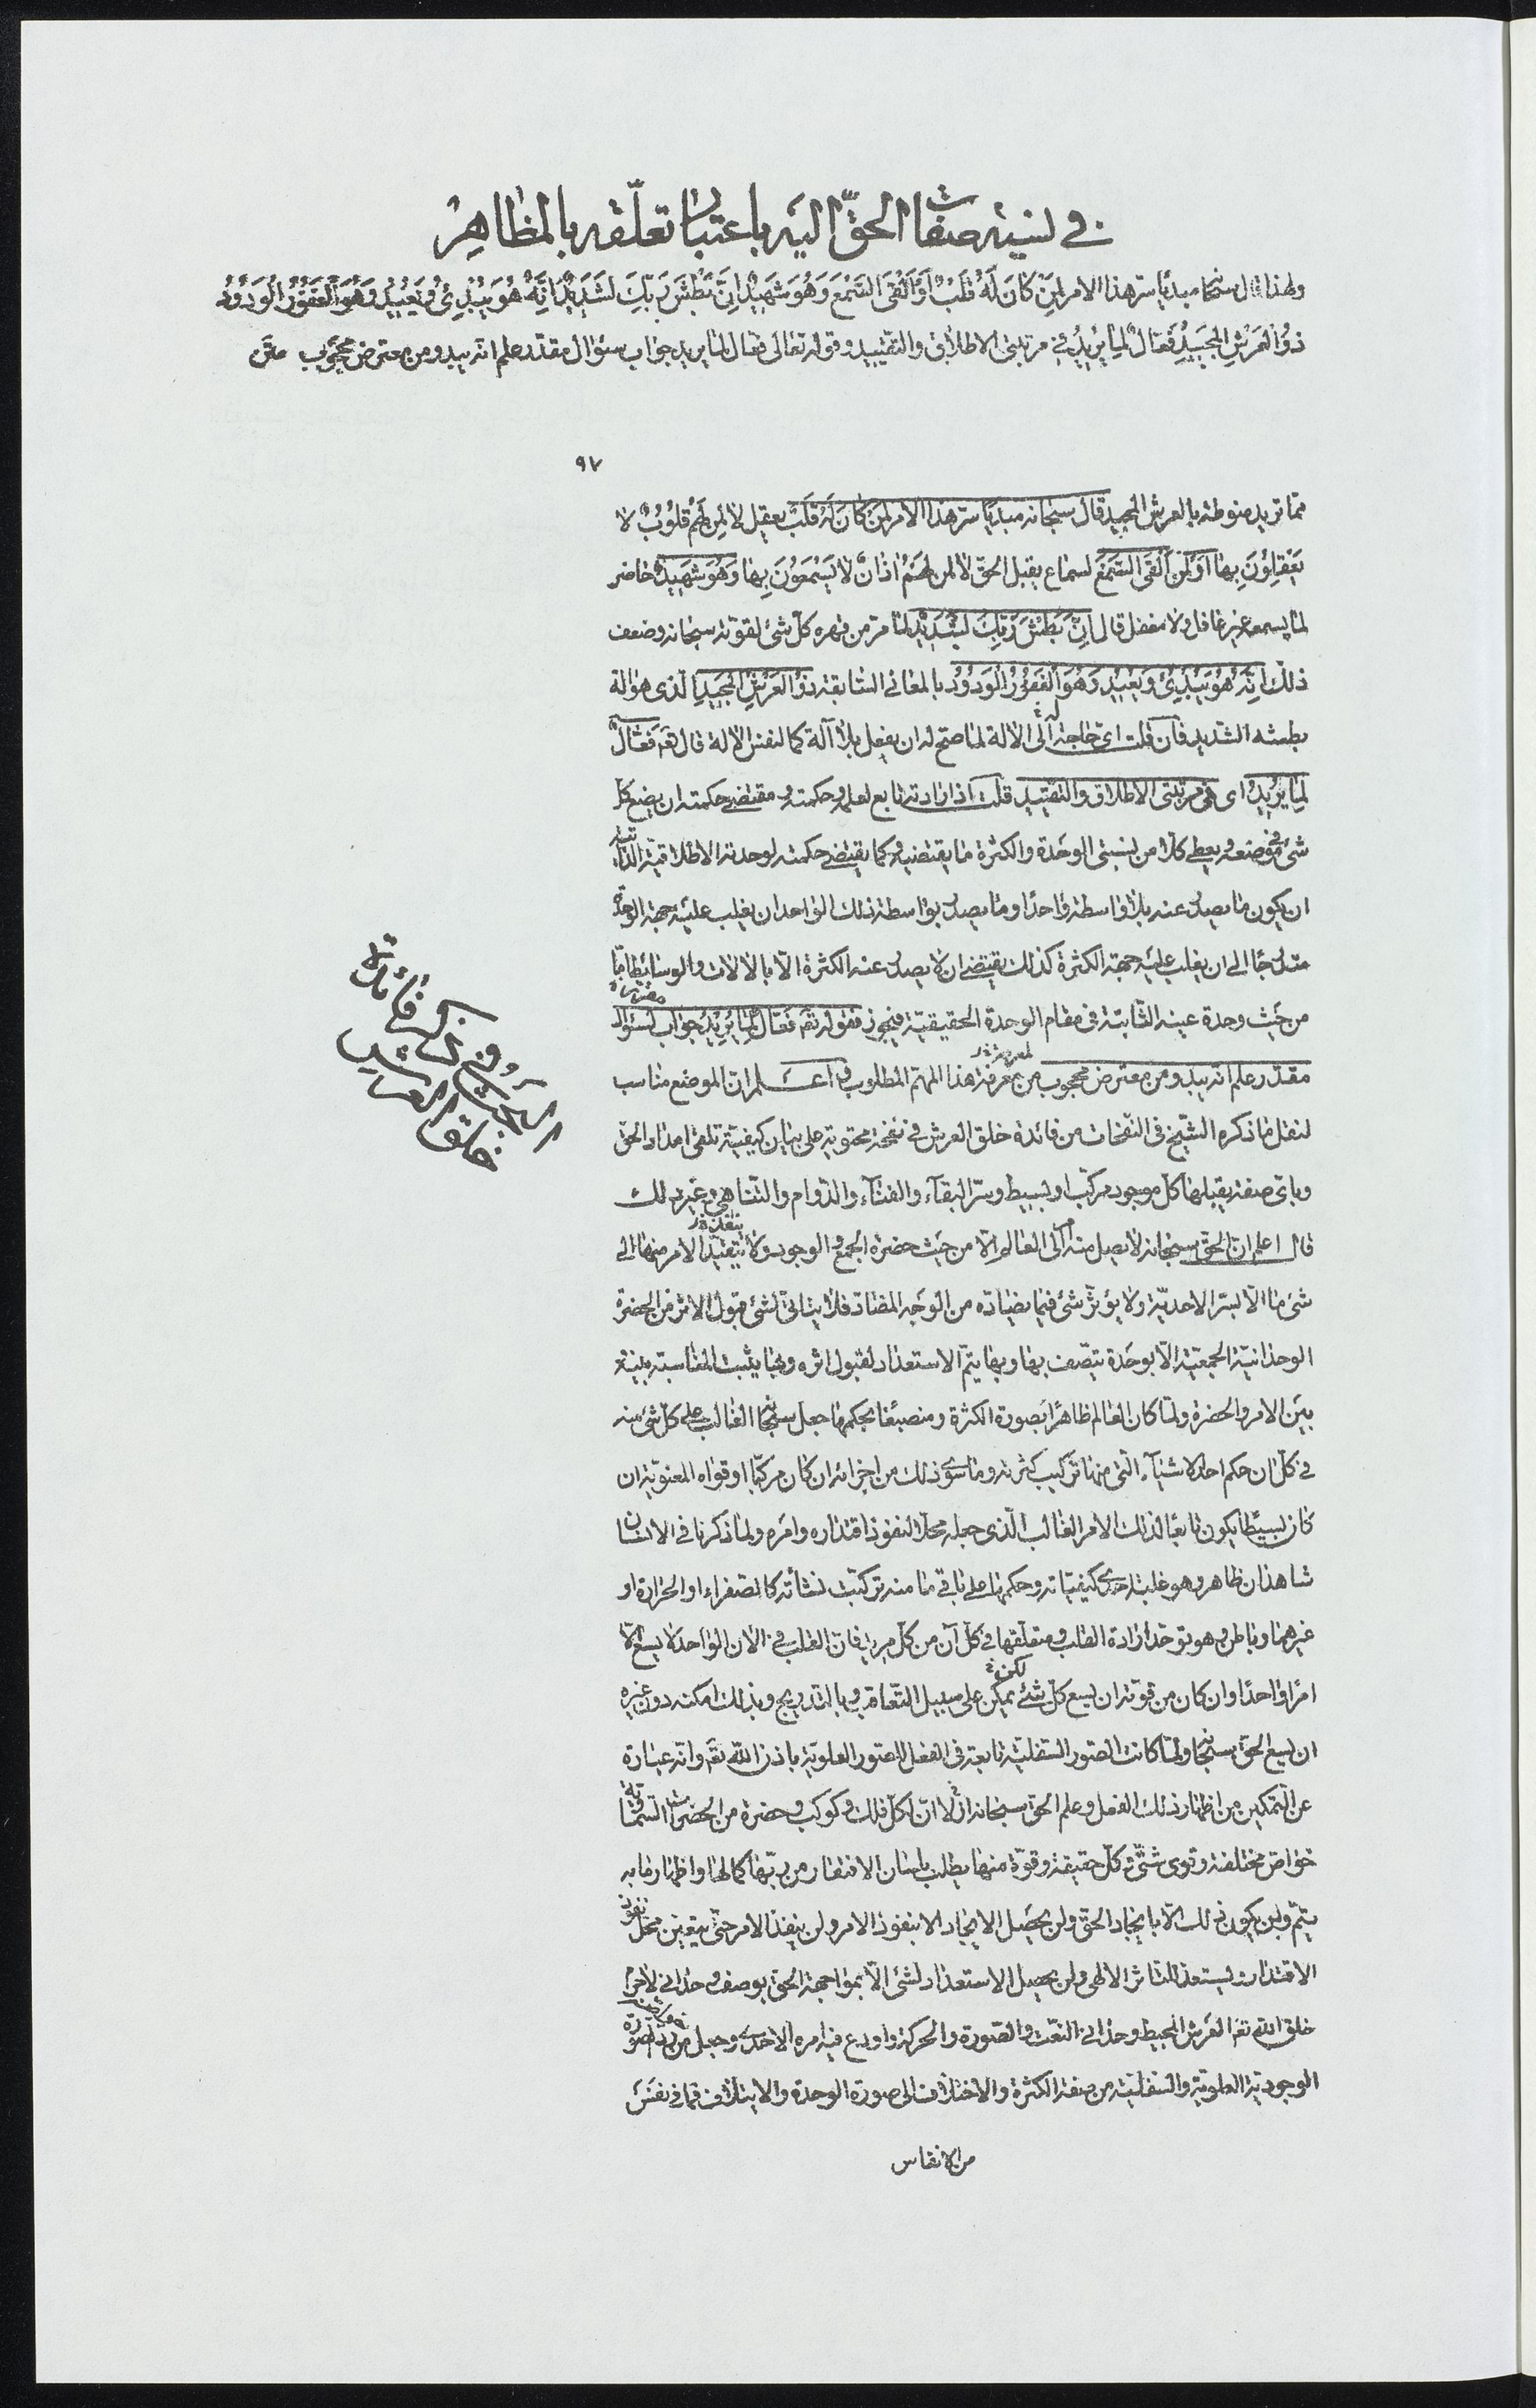 في نسبة صفات الحقّ اليه باعتبار تعلّقه بالمظاهر
ولهذا قال سبحانه مبديًا سر هذا الامر لِمَنْ كانَ لَهُ قَلْبٌ اَوْ اَلْقَى السَّمْعَ وَهُوَ شَهيدٌ اِنَّ بَطْشَ رَبِّكَ لَشَديدٌ اِنَّهُ هُوَ يُبْدِئُ وَيُعيدُ وَهُوَ الْغَفُورُ الْوَدُودُ
ذُو الْعَرْشِ الْمَجيدُ فَعّالٌ لِما يُريدُ في مرتبتي الاطلاق والتقييد وقوله تعالى فعال لما يريد جواب سؤال مقدّر علم انه يبدو من معترض محجوب متن
٩٧
ممّا تريد منوطة بالعرش المجيد قال سبحانه مبديًا سرّ هذا الامر لمن كان له قلب يعقل لا لمن لهم قلوب لا
يَعْقِلُونَ بِها اَوْ لمن اَلْقَى السَّمْعَ لسماع يقبل الحقّ لا لمن لهم اذانٌ لا يَسْمَعُونَ بِها وَهُوَ شَهيدٌ حاضر
لما يسمع غير غافل ولا مغفل قال اِنَّ بَطْشَ رَبِّكَ لَشَديدٌ لما مرّ من قهره كلّ شئ لقوّته سبحانه وضعف
ذلك اِنَّهُ هُوَ يُبْدِئُ وَيُعيدُ وَهُوَ الْغَفُورُ الْوَدُودُ بالمعاني السّابقة ذُو الْعَرْشِ الْمَجيدِ الّذي هو الة
بطشه الشديد فان قلت اىّ حاجة له الى الالة لما صحّ له ان يفعل بلا آلة كما لنفس الالة قال تعَ فَعّالٌ
لِما يُريدُ اى في مرتبتي الاطلاق والتقييد قلت اذ ارادته تابع لعلمه وحكمته ومقتضى حكمته ان يضع كلّ
شئ في موضعه ويعطي كلّا من نسبتي الوحدة والكثرة ما يقتضيه وكما يقتضي حكمته لوحدته الاطلاقية الذاتية
ان يكون ما يصدر عنه بلا واسطة واحدًا وما يصدر بواسطة ذلك الواحد ان يغلب عليه جهة الوحدة
متدرجًا الى ان يغلب عليه جهة الكثرة كذلك يقتضي ان لا يصدر عنه الكثرة الّا بالالات والوسائط امّا
من حيث وحدة عينه الثّابتة في مقام الوحدة الحقيقيّة فيجوز فقوله تعَ فَعّالٌ لِما يُريدُ جواب لسؤال
مقدّر علم انه يبدو من معترض محجوب من معرفة هذا المهمّ المطلوب ثم اعلم ان الموضع مناسب
لنقل ما ذكره الشّيخ في النّفحات من فائدة خلق العرش في نفحة محتوية على بيان كيفية تلقى امداد الحق
وباىّ صفة يقبلها كلّ موجود مركّب او بسيط وسرّ البقآء والفنآء والدّوام والتّناهي وغير ذلك
قال اعلم انّ الحقّ سبحانه لا يصل منه امر الى العالم الّا من حيث حضرة الجمع والوجود ولا يتقيّد الامر منهما الى
شئ ما الّا بسرّ الاحديّة ولا يؤثر شئ فيما يضادّه من الوجه المضادّ فلا يتأتّى لشئ قبول الاثر من الحضرة
الوحدانيّة الجمعيّة الّا بوحدة يتّصف بها وبها يتمّ الاستعداد لقبول اثره وبها يثبت المناسبة بينه
بين الامر والحضرة ولمّا كان العالم ظاهرًا بصورة الكثرة ومنصبغًا بحكمها جعل سبحانه الغالب على كلّ شئ منه
في كلّ ان حكم احد الاشيآء الّتي منها تركيب كثرته وما سوى ذلك من اجزائه ان كان مركّبا او قواه المعنويّة ان
كان بسيطا يكون تابعًا لذلك الامر الغالب الّذي جعله محلّ النفوذ اقتداره وامره ولما ذكرنا في الانسان
شاهدان ظاهر وهو غلبة احدى كيفيّاته وحكمها على باقي ما منه تركبت نشأته كالصفراء او الحرارة او
غيرهما وباطن وهو توحد ارادة القلب ومتعلّقها في كلّ آن من كلّ مريد فانّ القلب في الان الواحد لا يسع الّا
امرًا واحدًا وان كان من قوّته ان يسع كلّ شئ لكن يمكن على سبيل التّعاقب وبالتدريج وبذلك امكنه دون غيره
ان يسع الحقّ سبحانه ولمّا كانت الصّور السّفليّة تابعة في الفعل للصّور العلويّة باذن اللّه تعَ وانّه عبارة
عن التّمكين من اظهار ذلك الفعل وعلم الحق سبحانه ازلا انّ لكلّ فلك وكوكب وحضرة من الحضرات السّمائيّة
خواصّ مختلفة وقوى شتّى كلّ حقيقة وقوّة منها يطلب بلسان الافتقار من ربّها كمالها واظهار ما به
يتمّ ولن يكون ذلك الّا بايجاد الحقّ ولن يحصل الايجاد الا بنفوذ الامر ولن ينفذ الامر حتّى يتعيّن محل نفوذ
الاقتدار ويستعدّ للتأثر الالهي ولن يحصل الاستعداد لشئ الّا بمواجهة الحقّ بوصف وحداني لا جرم
خلق اللّه تعَ العرش المحيط وحداني النّعت والصّورة والحركة واودع فيه امره الاحدى وجعل مردّ الصورة
الوجوديّة العلويّة والسّفليّة من صفة الكثرة والاختلاف الى صورة الوحدة والايتلاف فما في نفَس
من الانفاس
خلق العرش